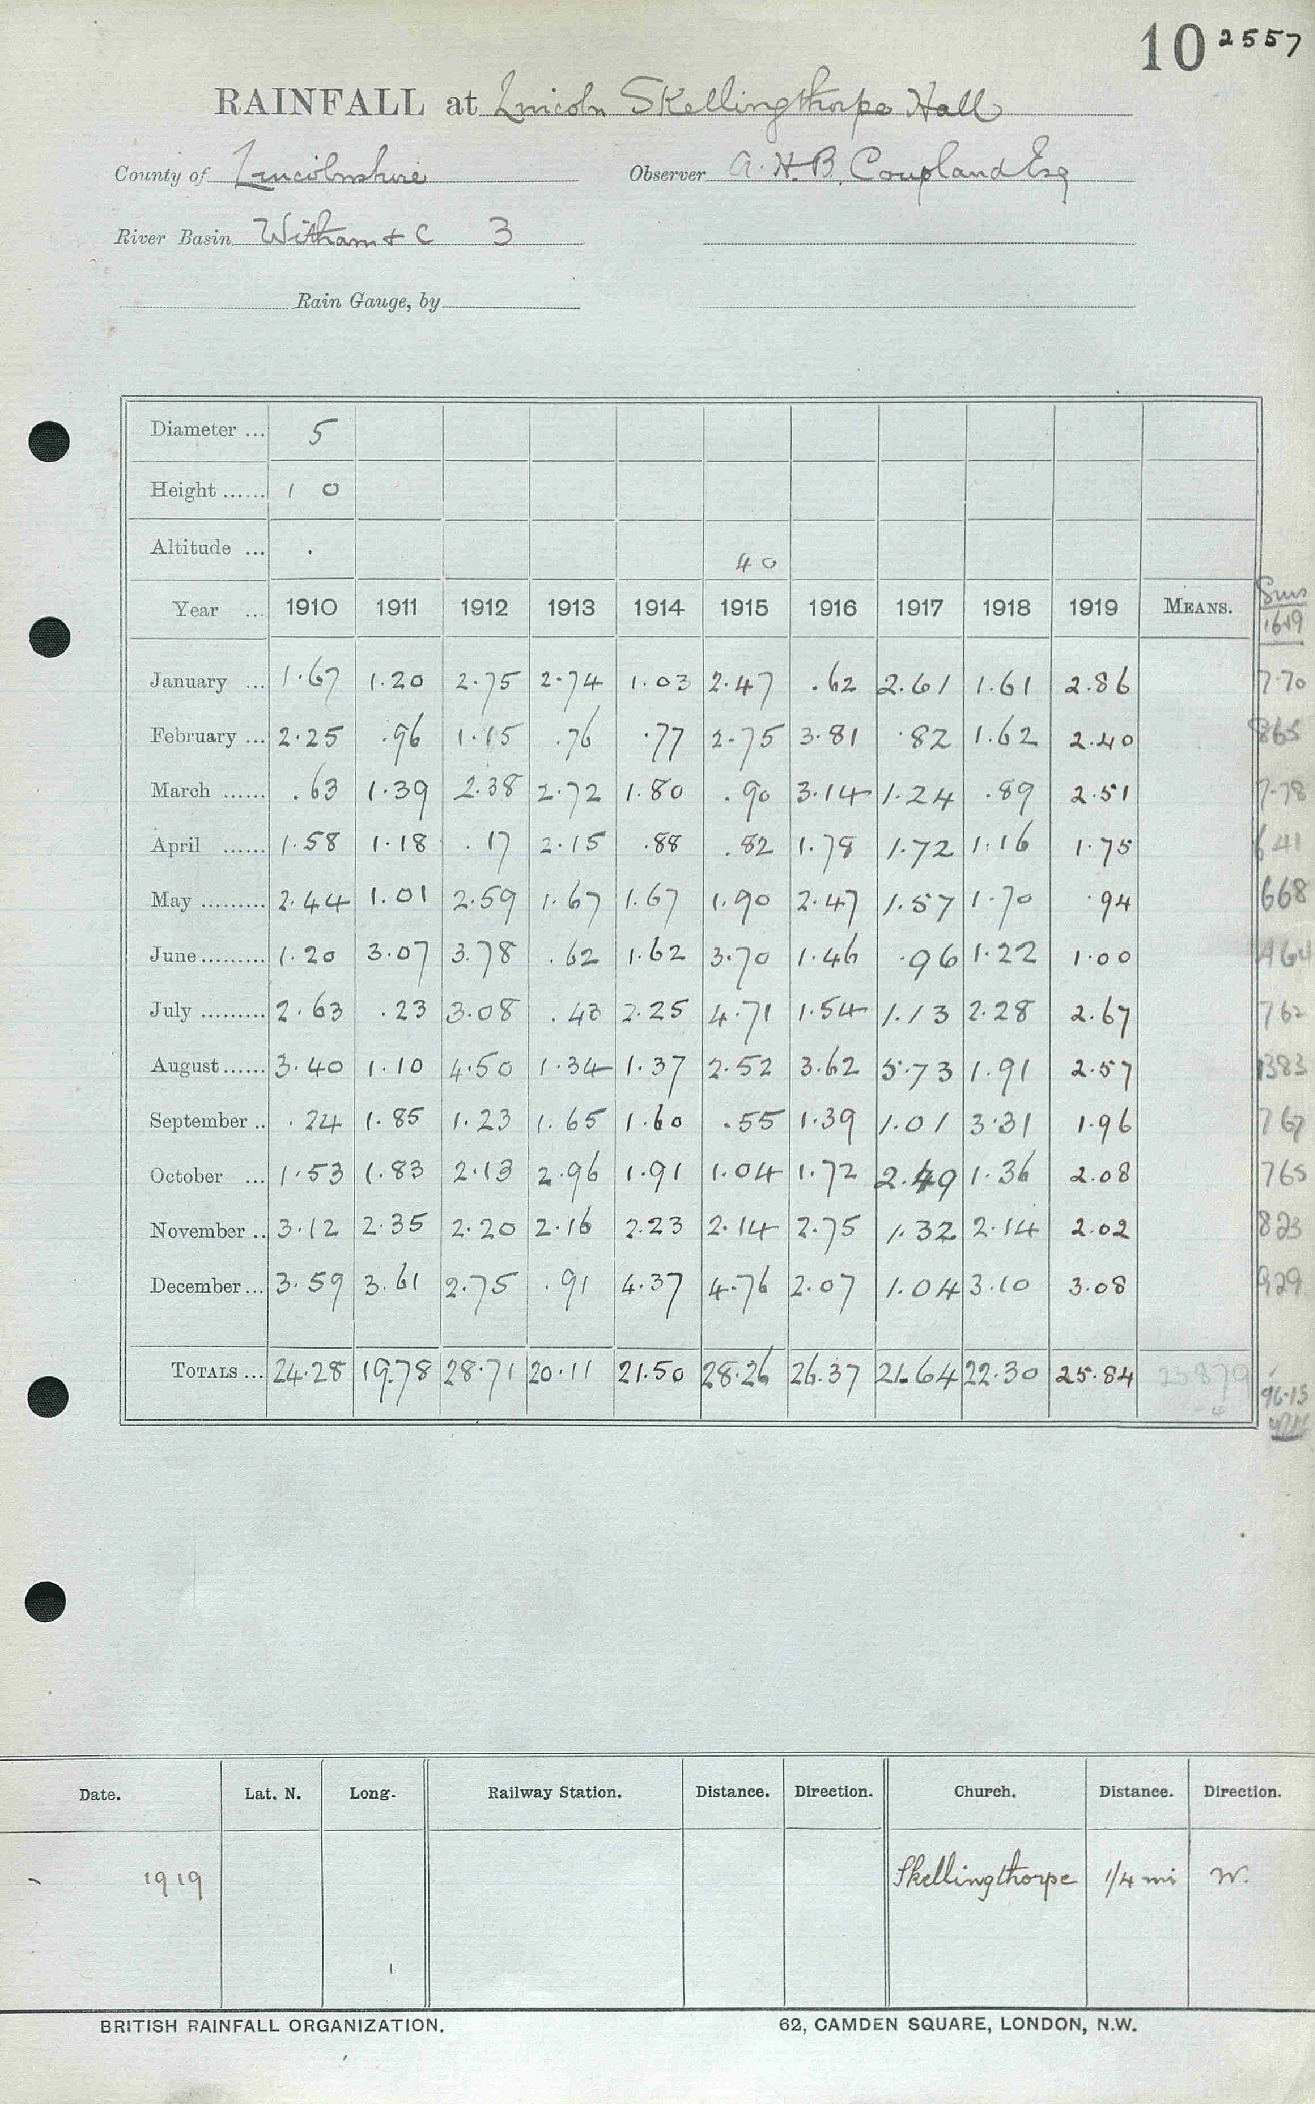 10 2557
RAINFALL at Lincoln Skellingthorpe Hall
County of Lincolnshire Observer A.H.B. Coupland Esq
River Basin Witham + C 3
Rain Gauge, by
Diameter ... 5
Height ...... 1 0
Altitude ... . 40
Sums
Year ... 1910 1911 1912 1913 1914 1915 1916 1917 1918 1919 MEANS. 16-19
January ... 1.67 1.20 2.75 2.74 1.03 2.47 .62 2.61 1.61 2.86 7.70
February ... 2.25 .96 1.15 .76 .77 2.75 3.81 .82 1.62 2.40 865
March ...... .63 1.39 2.38 2.72 1.80 .90 3.14 1.24 .89 2.51 7.78
April ...... 1.58 1.18 .17 2.15 .88 .82 1.78 1.72 1.16 1.75 641
May ......... 2.44 1.01 2.59 1.67 1.67 1.90 2.47 1.57 1.70 .94 668
June ......... 1.20 3.07 3.78 .62 1.62 3.70 1.46 .96 1.22 1.00 464
July ......... 2.63 .23 3.08 .43 2.25 4.71 1.54 1.13 2.28 2.67 762
August ...... 3.40 1.10 4.50 1.34 1.37 2.52 3.62 5.73 1.91 2.57 1383
September .. .24 1.85 1.23 1.65 1.60 .55 1.39 1.01 3.31 1.96 767
October ... 1.53 1.83 2.13 2.96 1.91 1.04 1.72 2.49 1.36 2.08 765
November .. 3.12 2.35 2.20 2.16 2.23 2.14 2.75 1.32 2.14 2.02 823
December ... 3.59 3.61 2.75 .91 4.37 4.76 2.07 1.04 3.10 3.08 929
TOTALS ... 24.28 19.78 28.71 20.11 21.50 28.26 26.37 21.64 22.30 25.84 23879 96.15
Date. Lat. N. Long. Railway Station. Distance. Direction. Church. Distance. Direction.
1919 Skellingthorpe 1/4 mi W.
BRITISH RAINFALL ORGANIZATION. 62, CAMDEN SQUARE, LONDON, N.W.